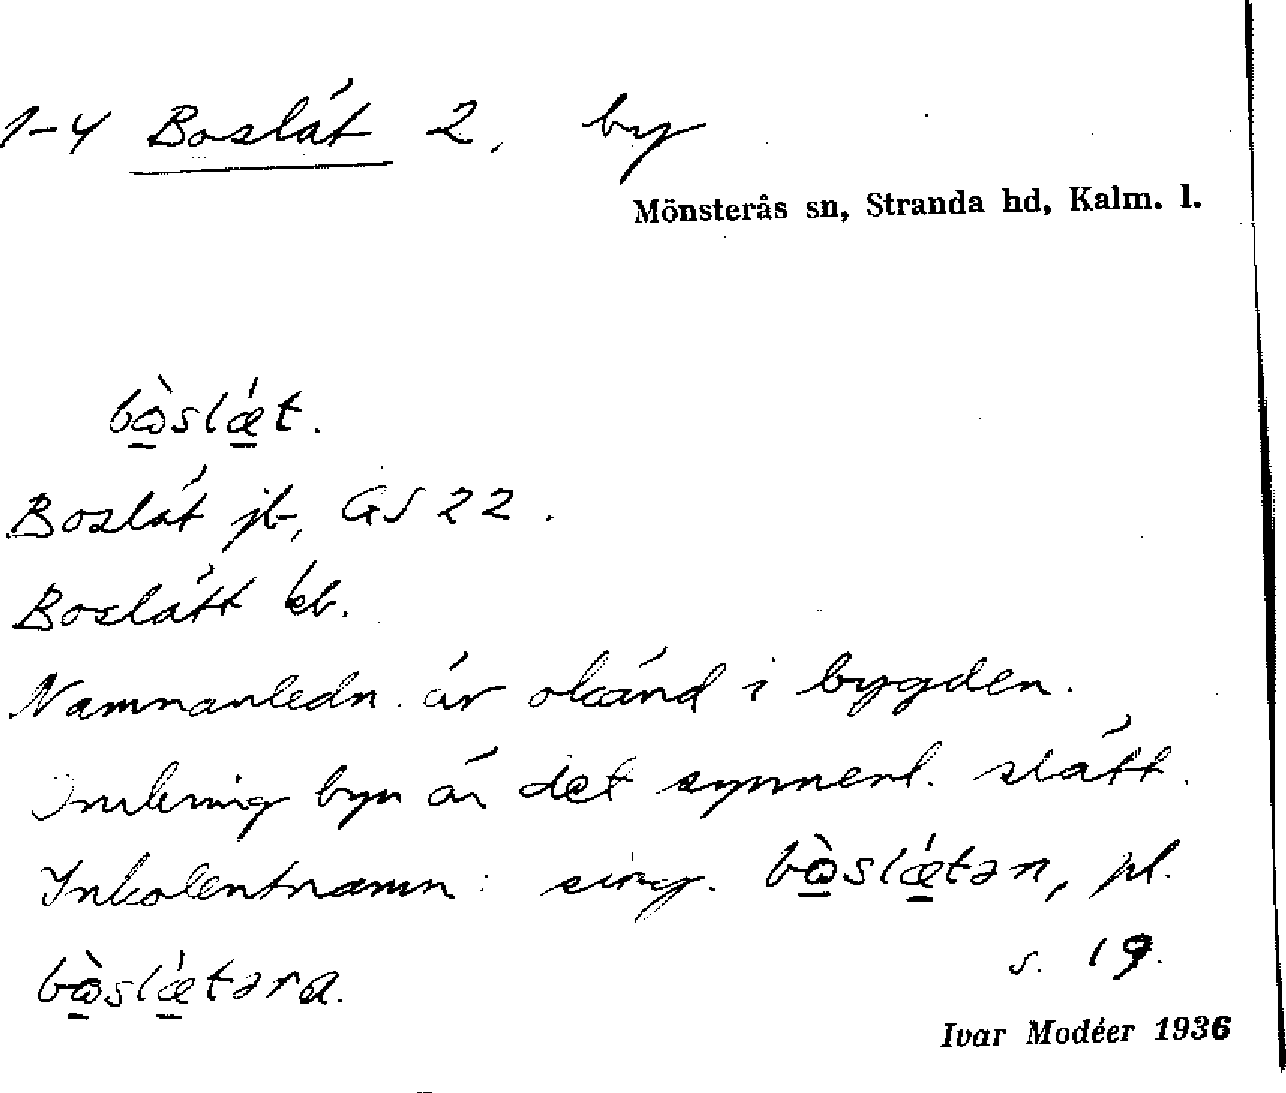 1-4 Boslät 2, by
Mönsterås sn, Stranda hd, Kalm. l.
bòslǽt.
Boslät jb, GS 22.
Boslätt kb.
Namnanledn. är okänd i bygden.
Omkring byn är det synnerl. slätt.
Inkolentnamn: sing. bòslǽtən, pl.
bòslǽtəra.
s. 19.
Ivar Modéer 1936